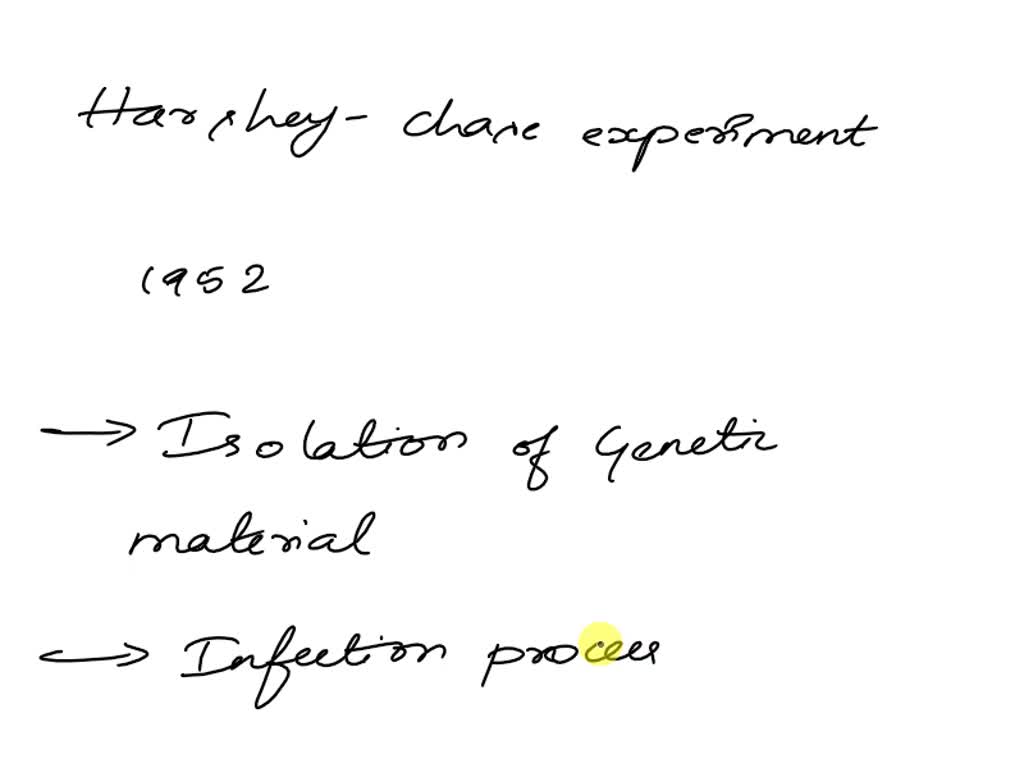 Harshey - chase experiment
1952
→ Isolation of Genetic
material
→ Infection process